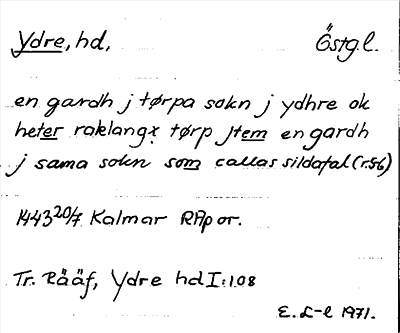 Ydre, hd, Östg.l.
en gardh j tørpa sokn j ydhre ok
heter raklangx tørp Jtem en gardh
j sama sokn som callas sildafal (r.5-6)
1443 20/7 Kalmar RAp or.
Tr. Rääf, Ydre hd I:108
E. L-l 1971.